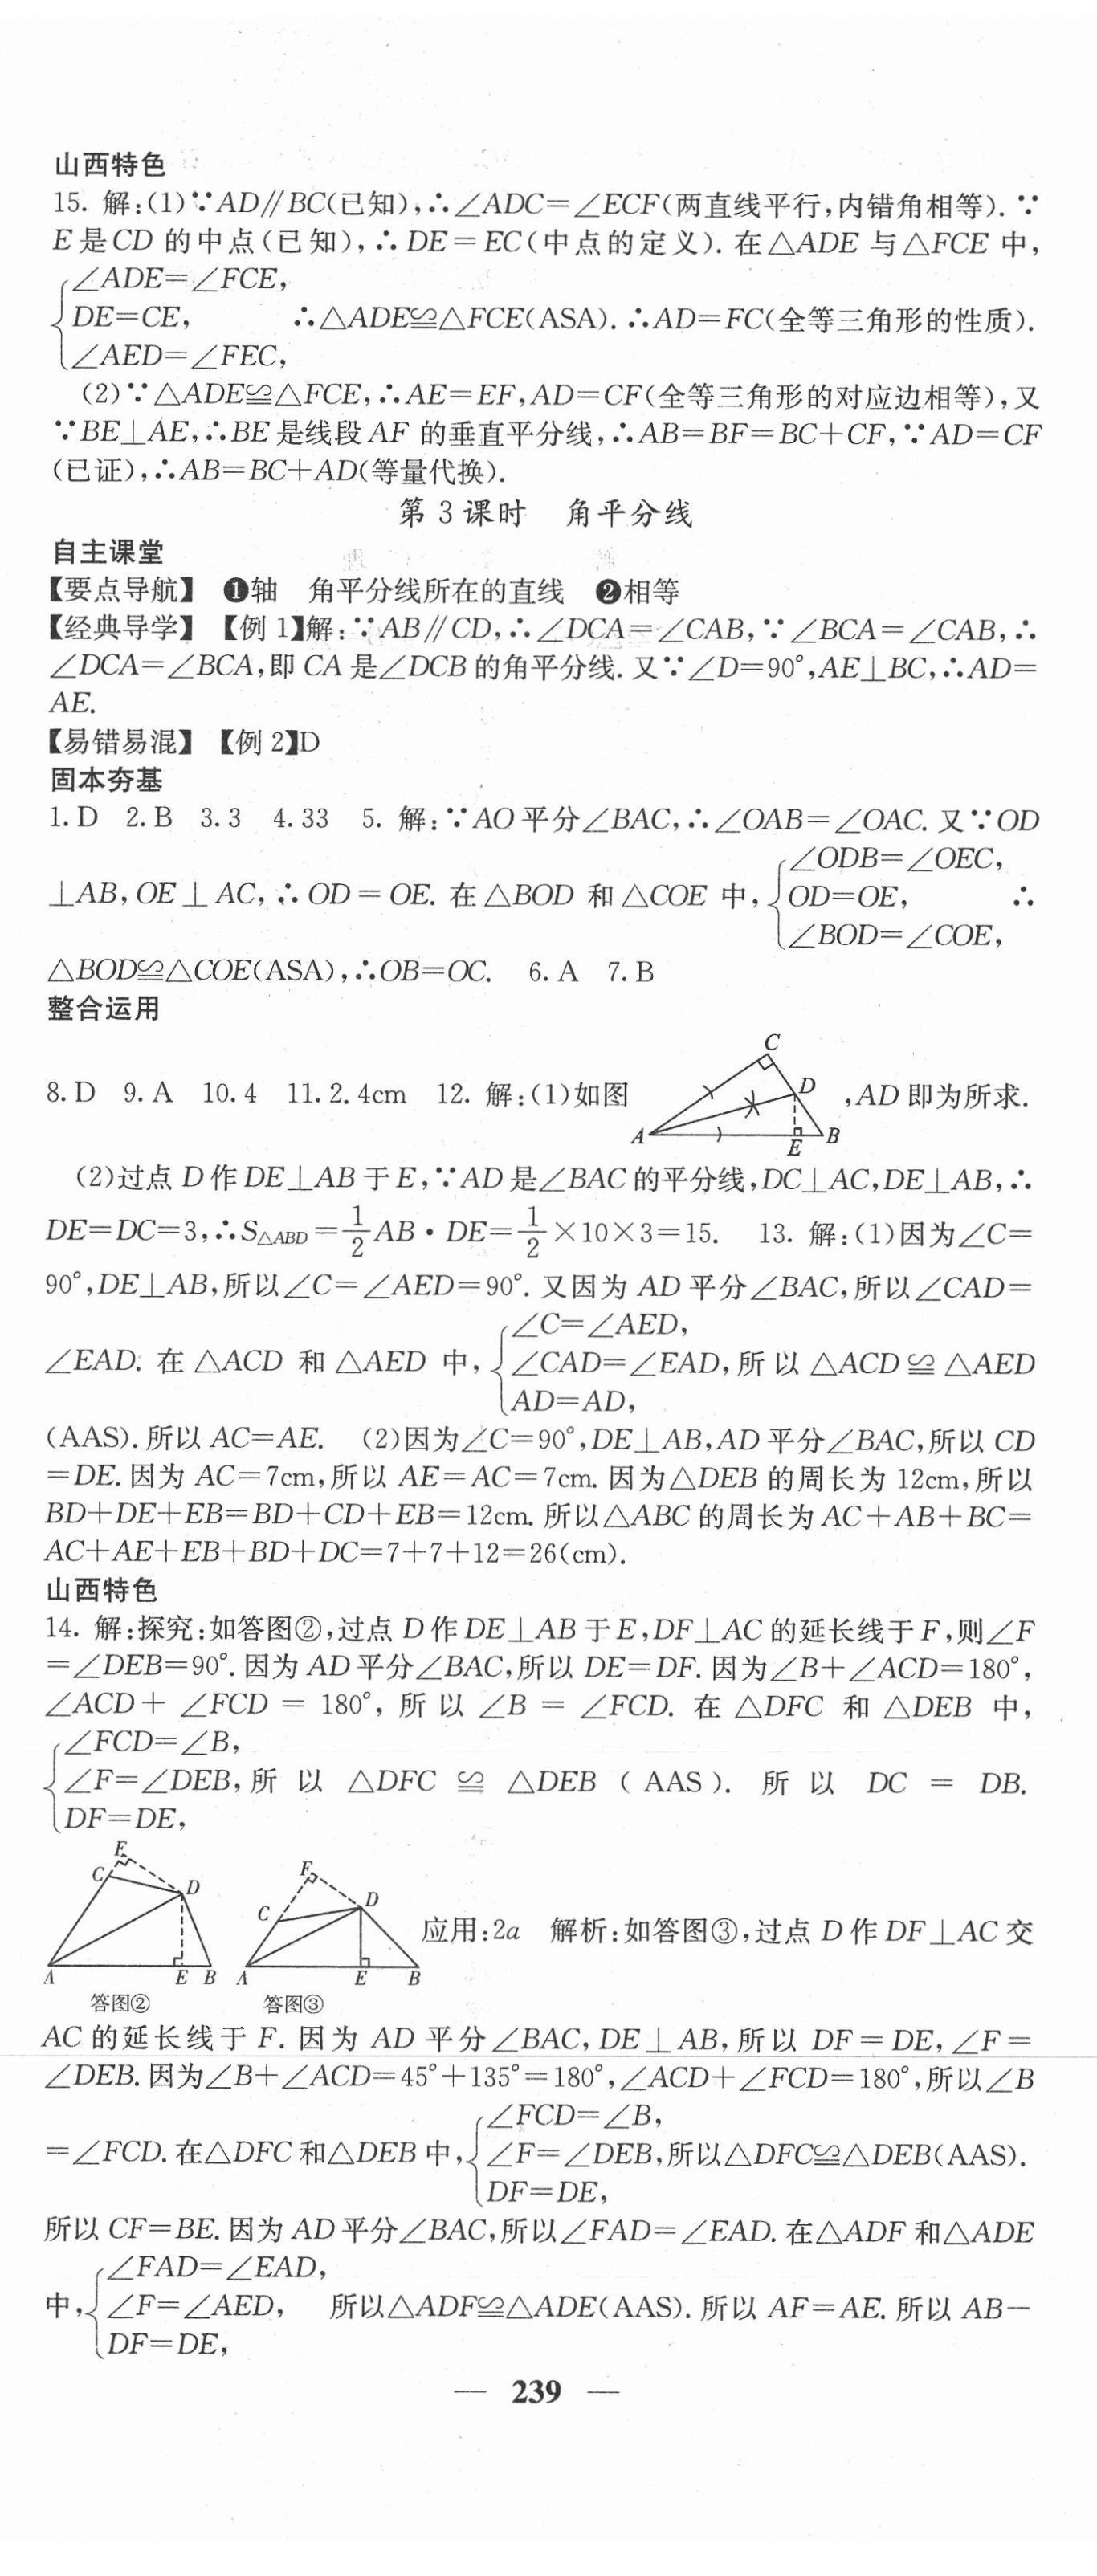 山西特色
15. 解:(1)∵AD∥BC(已知),∴∠ADC=∠ECF(两直线平行,内错角相等).∵
E是CD 的中点(已知),∴DE=EC(中点的定义).在△ADE 与△FCE 中,
∠ADE=∠FCE,
DE=CE, ∴△ADE≌△FCE(ASA).∴AD=FC(全等三角形的性质).
∠AED=∠FEC,
(2)∵△ADE≌△FCE,∴AE=EF,AD=CF(全等三角形的对应边相等),又
∵BE⊥AE,∴BE是线段AF 的垂直平分线,∴AB=BF=BC+CF,∵AD=CF
(已证),∴AB=BC+AD(等量代换).
第3课时 角平分线
自主课堂
【要点导航】 ❶轴 角平分线所在的直线 ❷相等
【经典导学】【例1】解:∵AB∥CD,∴∠DCA=∠CAB,∵∠BCA=∠CAB,∴
∠DCA=∠BCA,即CA是∠DCB的角平分线.又∵∠D=90°,AE⊥BC,∴AD=
AE.
【易错易混】【例2】D
固本夯基
1.D 2.B 3.3 4.33 5. 解:∵AO平分∠BAC,∴∠OAB=∠OAC.又∵OD
∠ODB=∠OEC,
⊥AB,OE⊥AC,∴OD=OE.在△BOD 和△COE 中, OD=OE, ∴
∠BOD=∠COE,
△BOD≌△COE(ASA),∴OB=OC. 6.A 7.B
整合运用
C
8.D 9.A 10.4 11.2.4cm 12. 解:(1)如图 D ,AD即为所求.
A E B
(2)过点D作DE⊥AB于E,∵AD是∠BAC的平分线,DC⊥AC,DE⊥AB,∴
DE=DC=3,∴S△ABD=1/2AB·DE=1/2×10×3=15. 13. 解:(1)因为∠C=
90°,DE⊥AB,所以∠C=∠AED=90°.又因为AD平分∠BAC,所以∠CAD=
∠C=∠AED,
∠EAD.在△ACD 和△AED 中, ∠CAD=∠EAD,所以△ACD≌△AED
AD=AD,
(AAS).所以AC=AE. (2)因为∠C=90°,DE⊥AB,AD平分∠BAC,所以CD
=DE.因为AC=7cm,所以AE=AC=7cm.因为△DEB的周长为12cm,所以
BD+DE+EB=BD+CD+EB=12cm.所以△ABC的周长为AC+AB+BC=
AC+AE+EB+BD+DC=7+7+12=26(cm).
山西特色
14. 解:探究:如答图②,过点D作DE⊥AB于E,DF⊥AC的延长线于F,则∠F
=∠DEB=90°.因为AD平分∠BAC,所以DE=DF.因为∠B+∠ACD=180°,
∠ACD+∠FCD=180°,所以∠B=∠FCD.在△DFC 和△DEB 中,
∠FCD=∠B,
∠F=∠DEB,所以△DFC≌△DEB(AAS).所以DC=DB.
DF=DE,
F C D F C D
应用:2a 解析:如答图③,过点D作DF⊥AC交
A E B A E B
答图② 答图③
AC的延长线于F.因为AD平分∠BAC,DE⊥AB,所以DF=DE,∠F=
∠DEB.因为∠B+∠ACD=45°+135°=180°,∠ACD+∠FCD=180°,所以∠B
∠FCD=∠B,
=∠FCD.在△DFC和△DEB中, ∠F=∠DEB,所以△DFC≌△DEB(AAS).
DF=DE,
所以CF=BE.因为AD平分∠BAC,所以∠FAD=∠EAD.在△ADF和△ADE
∠FAD=∠EAD,
中, ∠F=∠AED, 所以△ADF≌△ADE(AAS).所以AF=AE.所以AB−
DF=DE,
— 239 —